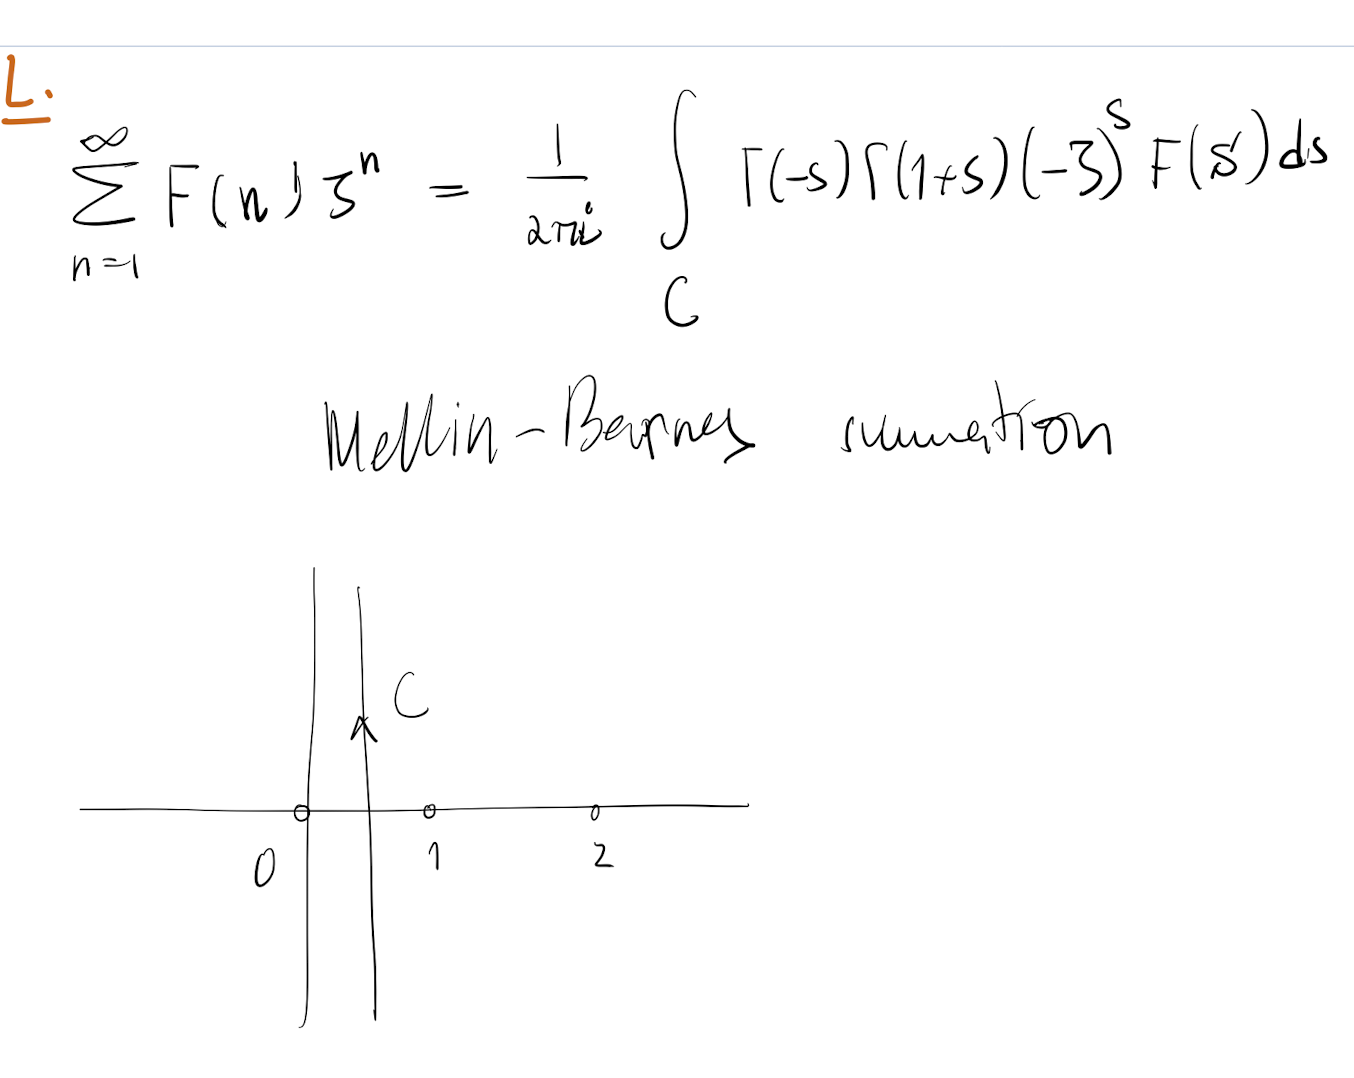 L.
∑_{n=1}^{∞} F(n) ζ^n = \frac{1}{2πi} ∫_C Γ(-s) Γ(1+s) (-ζ)^s F(s) ds
Mellin-Barnes summation
C
0 1 2